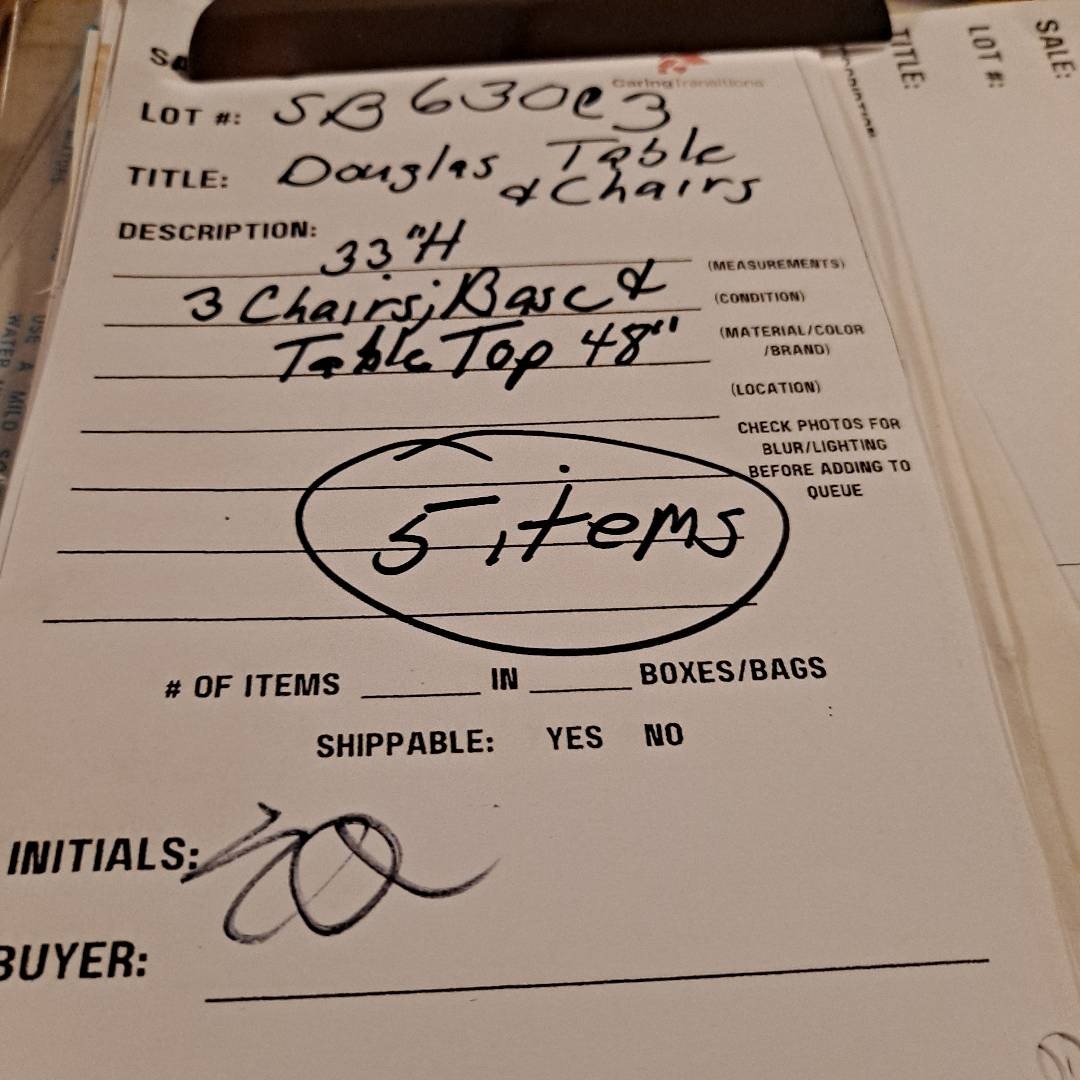 LOT #: SB 630e3
Caring Transitions
TITLE: Douglas Table
& Chairs
DESCRIPTION:
33"H
(MEASUREMENTS)
3 Chairs; Base &
(CONDITION)
Table Top 48"
(MATERIAL/COLOR
/BRAND)
(LOCATION)
CHECK PHOTOS FOR
BLUR/LIGHTING
BEFORE ADDING TO
QUEUE
5 items
# OF ITEMS ______ IN ______ BOXES/BAGS
SHIPPABLE: YES NO
INITIALS:
BUYER:
TITLE:
LOT #:
SALE:
USE A MILD
WATER